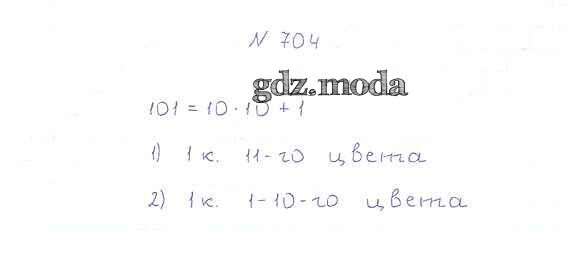 N 704
gdz.moda
101 = 10 · 10 + 1
1) 1 к. 11-го цвета
2) 1 к. 1-10-го цвета